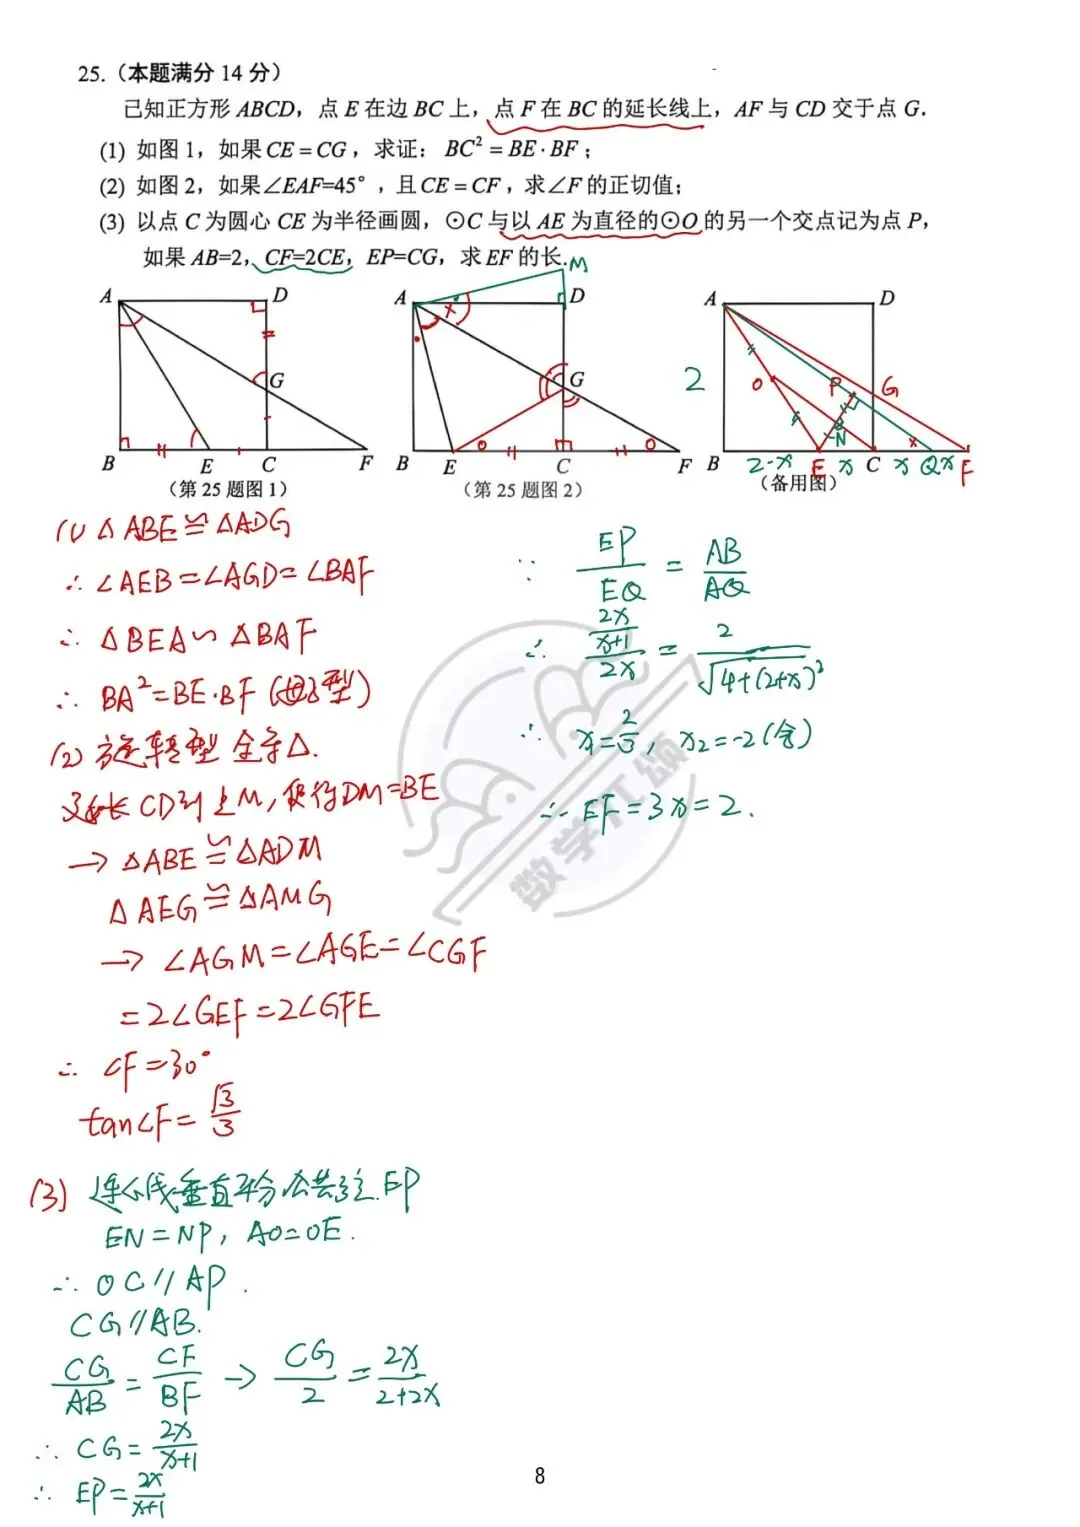 25.（本题满分 14 分）
已知正方形 ABCD，点 E 在边 BC 上，点 F 在 BC 的延长线上，AF 与 CD 交于点 G．
(1) 如图 1，如果 CE = CG，求证：BC² = BE · BF；
(2) 如图 2，如果∠EAF=45°，且 CE = CF，求∠F 的正切值；
(3) 以点 C 为圆心 CE 为半径画圆，⊙C 与以 AE 为直径的⊙O 的另一个交点记为点 P，
如果 AB=2，CF=2CE，EP=CG，求 EF 的长．
A D G B E C F
（第 25 题图 1）
M A D × G B E C F
（第 25 题图 2）
A D 2 O P G N × B 2-x E x C x Q x F
（备用图）
(1) △ABE≌△ADG
∴ ∠AEB=∠AGD=∠BAF
∴ △BEA∽△BAF
∴ BA²=BE·BF (母子型)
(2) 旋转型 全等△.
延长CD到点M,使得DM=BE
→ △ABE≌△ADM
△AEG≌△AMG
→ ∠AGM=∠AGE=∠CGF
=2∠GEF=2∠GFE
∴ ∠F=30°
tan∠F=√3/3
(3) 连心线垂直平分公共弦EP
EN=NP, AO=OE.
∴ OC//AP.
CG//AB.
CG/AB = CF/BF → CG/2 = 2x/2+2x
∴ CG=2x/x+1
∴ EP=2x/x+1
∵ EP/EQ = AB/AQ
∴ 2x/x+1/2x = 2/√4+(2+x)²
∴ x₁=2/3, x₂=-2(舍)
∴ EF=3x=2.
数学汇颂
8